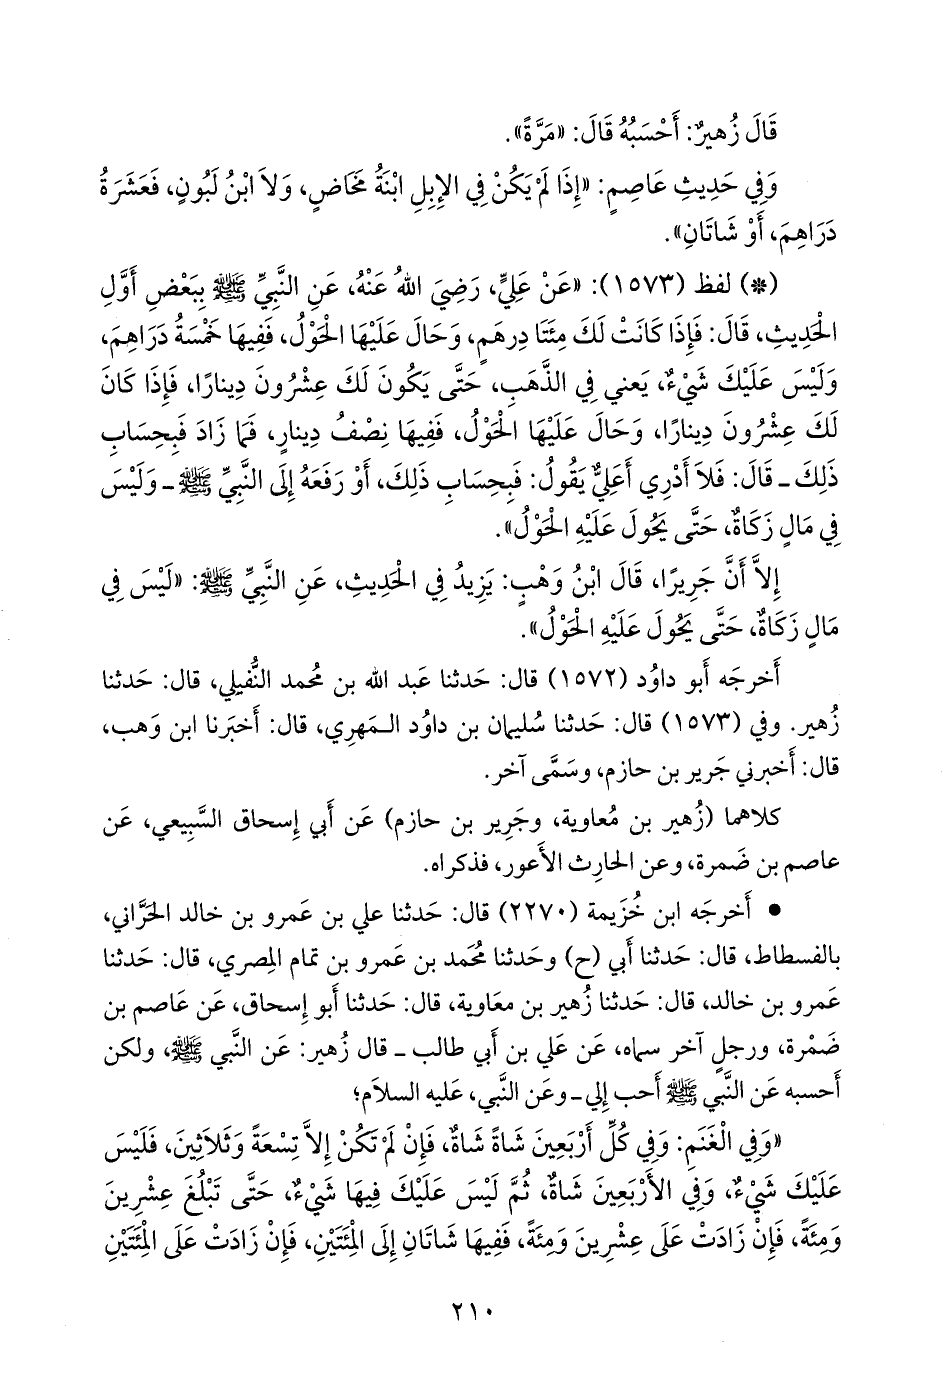 قَالَ زُهيرٌ: أَحْسَبُهُ قَالَ: «مَرَّةً».
وَفِي حَدِيثِ عَاصِمٍ: «إِذَا لَمْ يَكُنْ فِي الإِبِلِ ابْنَةُ مَخَاضٍ، وَلاَ ابْنُ لَبُونٍ، فَعَشَرَةُ
دَرَاهِمَ، أَوْ شَاتَانِ».
(*) لفظ (١٥٧٣): «عَنْ عَلِيٍّ، رَضِيَ اللهُ عَنْهُ، عَنِ النَّبِيِّ ﷺ بِبَعْضِ أَوَّلِ
الْحَدِيثِ، قَالَ: فَإِذَا كَانَتْ لَكَ مِئَتَا دِرهَمٍ، وَحَالَ عَلَيْهَا الْحَوْلُ، فَفِيهَا خَمْسَةُ دَرَاهِمَ،
وَلَيْسَ عَلَيْكَ شَيْءٌ، يَعني فِي الذَّهَبِ، حَتَّى يَكُونَ لَكَ عِشْرُونَ دِينَارًا، فَإِذَا كَانَ
لَكَ عِشْرُونَ دِينَارًا، وَحَالَ عَلَيْهَا الْحَوْلُ، فَفِيهَا نِصْفُ دِينَارٍ، فَمَا زَادَ فَبِحِسَابِ
ذَلِكَ ـ قَالَ: فَلاَ أَدْرِي أَعَلِيٌّ يَقُولُ: فَبِحِسَابِ ذَلِكَ، أَوْ رَفَعَهُ إِلَى النَّبِيِّ ﷺ ـ وَلَيْسَ
فِي مَالٍ زَكَاةٌ، حَتَّى يَحُولَ عَلَيْهِ الْحَوْلُ».
إِلاَّ أَنَّ جَرِيرًا، قَالَ ابْنُ وَهْبٍ: يَزِيدُ فِي الْحَدِيثِ، عَنِ النَّبِيِّ ﷺ: «لَيْسَ فِي
مَالٍ زَكَاةٌ، حَتَّى يَحُولَ عَلَيْهِ الْحَوْلُ».
أَخرجَه أَبو داوُد (١٥٧٢) قال: حَدثنا عَبد الله بن مُحمد النُّفيلي، قال: حَدثنا
زُهير. وفي (١٥٧٣) قال: حَدثنا سُليمان بن داوُد الـمَهرِي، قال: أَخبَرنا ابن وَهب،
قال: أَخبرني جَرير بن حازم، وسَمَّى آخر.
كلاهما (زُهير بن مُعاوية، وجَرِير بن حازم) عَن أَبي إِسحاق السَّبيعي، عَن
عاصم بن ضَمرة، وعن الحارِث الأَعور، فذكراه.
• أَخرجَه ابن خُزَيمة (٢٢٧٠) قال: حَدثنا علي بن عَمرو بن خالد الحَرَّاني،
بالفسطاط، قال: حَدثنا أَبي (ح) وحَدثنا مُحَمد بن عَمرو بن تمام المِصري، قال: حَدثنا
عَمرو بن خالد، قال: حَدثنا زُهير بن معَاوية، قال: حَدثنا أَبو إِسحاق، عَن عَاصم بن
ضَمْرة، ورجلٍ آخر سماه، عَن علي بن أَبي طالب ـ قال زُهير: عَن النَّبي ﷺ، ولكن
أَحسبه عَن النَّبي ﷺ أَحب إِلي ـ وعَن النَّبي، عَليه السلاَم؛
«وَفِي الْغَنَمِ: وَفِي كُلِّ أَرْبَعِينَ شَاةً شَاةٌ، فَإِنْ لَمْ تَكُنْ إِلاَّ تِسْعَةً وَثَلاَثِينَ، فَلَيْسَ
عَلَيْكَ شَيْءٌ، وَفِي الأَرْبَعِينَ شَاةٌ، ثُمَّ لَيْسَ عَلَيْكَ فِيهَا شَيْءٌ، حَتَّى تَبْلُغَ عِشْرِينَ
وَمِئَةً، فَإِنْ زَادَتْ عَلَى عِشْرِينَ وَمِئَةً، فَفِيهَا شَاتَانِ إِلَى الْمِئَتَيْنِ، فَإِنْ زَادَتْ عَلَى الْمِئَتَيْنِ
٢١٠